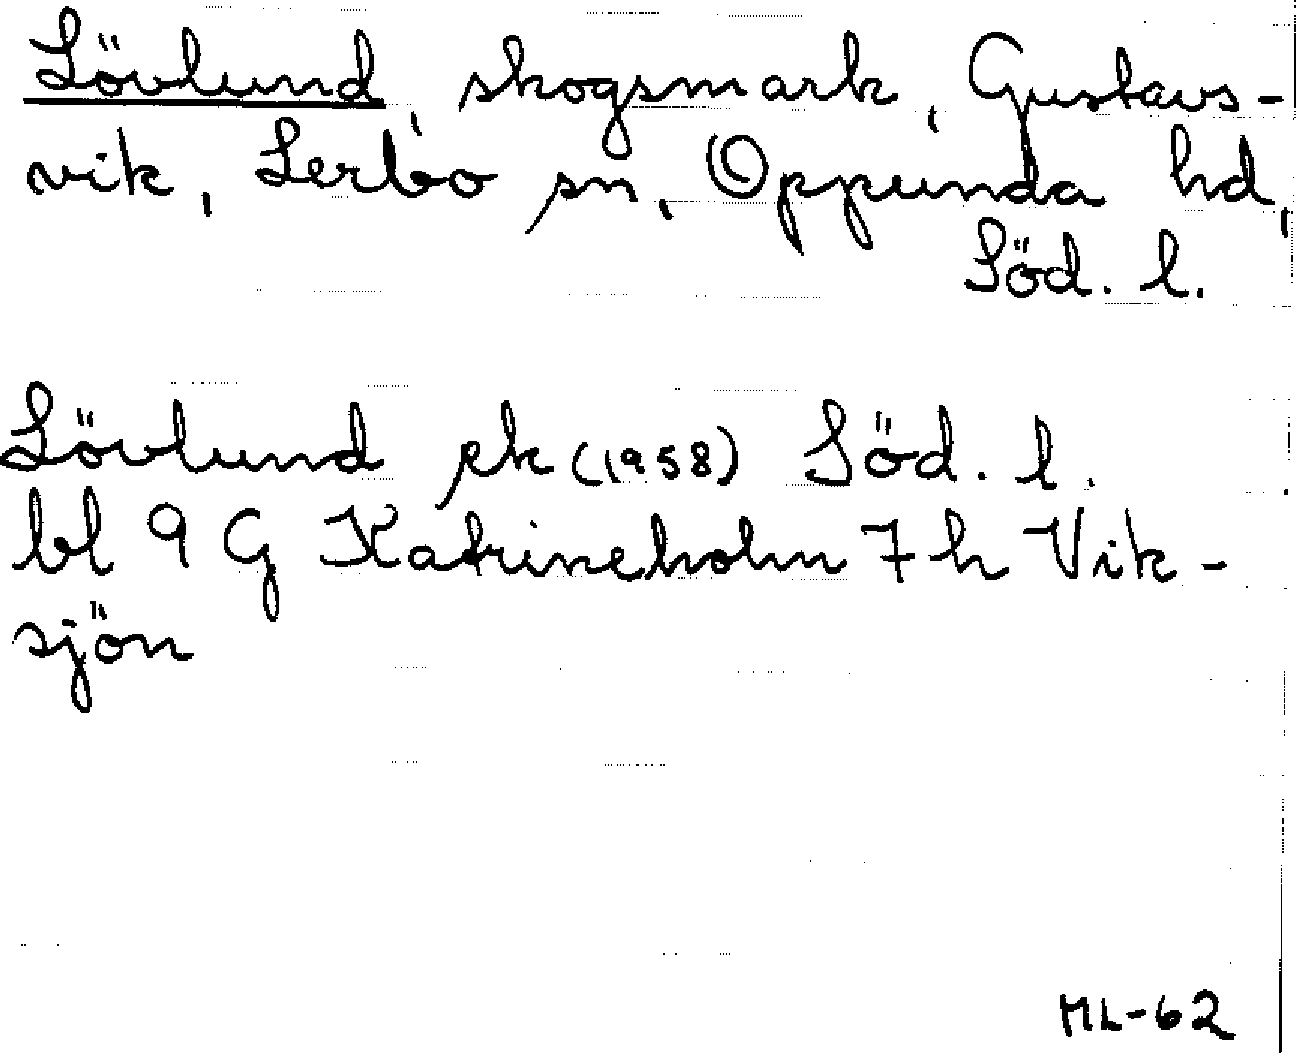 Lövlund, skogsmark, Gustavs-
vik, Lerbo sn, Oppunda hd,
Söd. l.
Lövlund ek (1958) Söd. l.
bl 9 G Katrineholm 7 h Vik-
sjön
ML-62